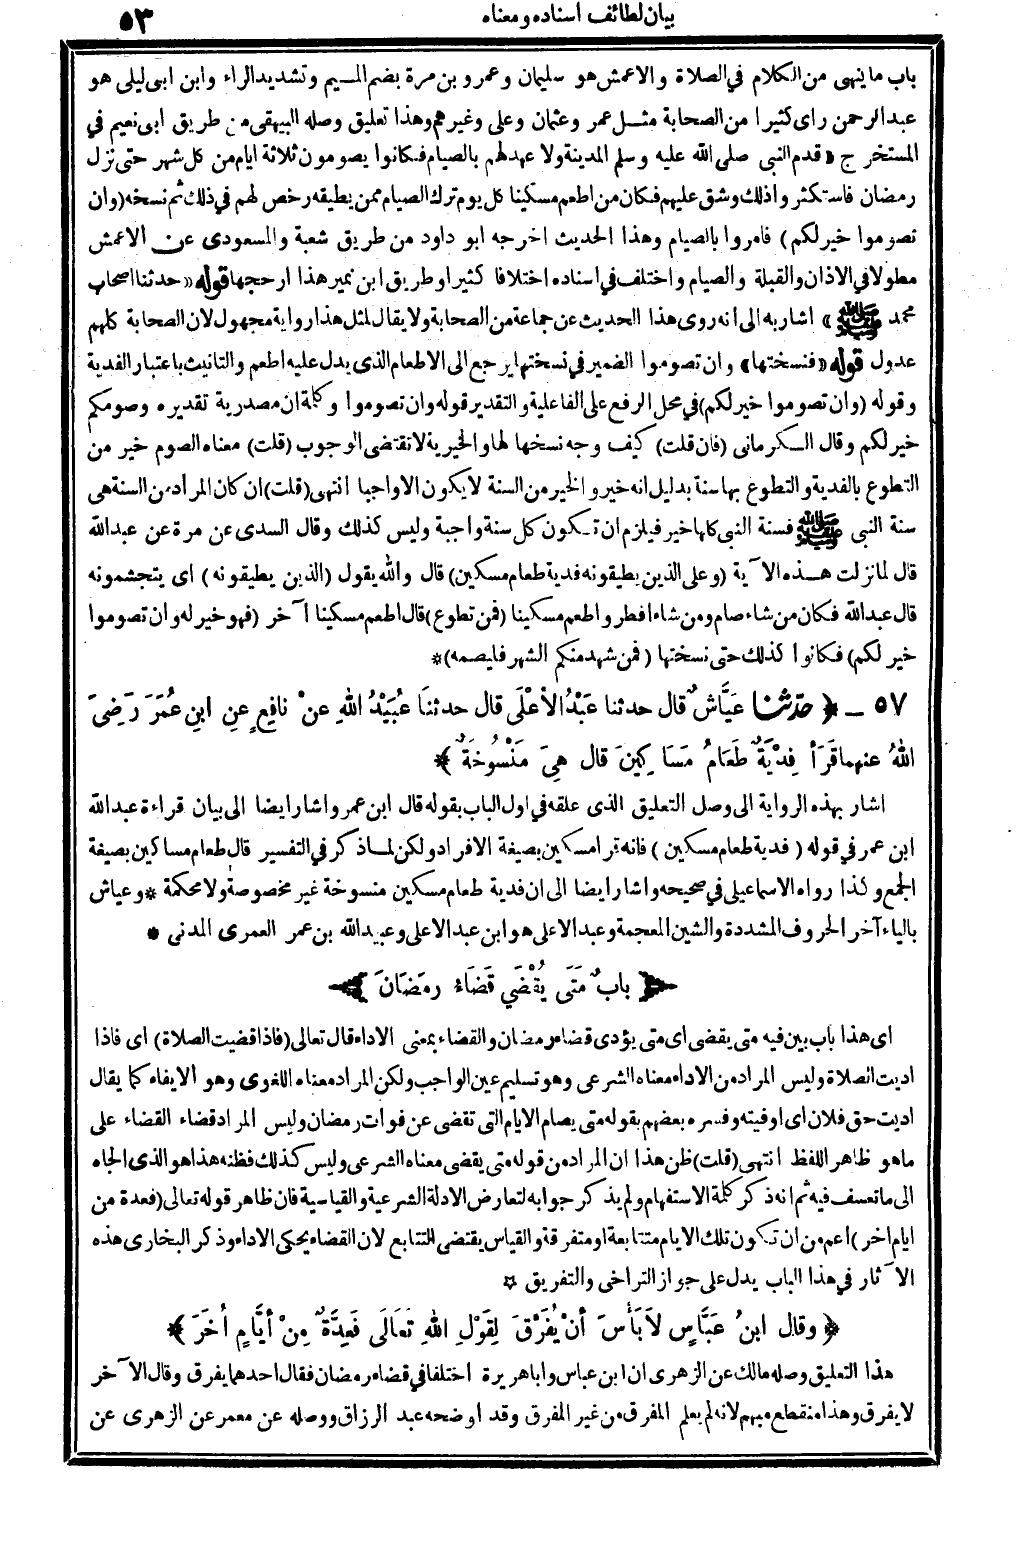 بيان لطائف اسناده ومعناه
٥٣
باب ما ينهى من الكلام في الصلاة والاعمش هو سليمان وعمرو بن مرة بضم الميم وتشديد الراء وابن ابى ليلى هو
عبد الرحمن راى كثيرا من الصحابة مثل عمر وعثمان وعلى وغيرهم وهذا تعليق وصله البيهقى من طريق ابى نعيم في
المستخرج «قدم النبى صلى الله عليه وسلم المدينة ولا عهد لهم بالصيام فكانوا يصومون ثلاثة ايام من كل شهر حتى نزل
رمضان فاستكثروا ذلك وشق عليهم فكان من اطعم مسكينا كل يوم ترك الصيام ممن يطيقه رخص لهم في ذلك ثم نسخه (وان
تصوموا خير لكم) فامروا بالصيام وهذا الحديث اخرجه ابو داود من طريق شعبة والمسعودى عن الاعمش
مطولا في الاذان والقبلة والصيام واختلف في اسناده اختلافا كثيرا وطريق ابن نمير هذا ارجحها قوله «حدثنا اصحاب
محمد ﷺ» اشار به الى انه روى هذا الحديث عن جماعة من الصحابة ولا يقال لمثل هذا رواية مجهول لان الصحابة كلهم
عدول قوله «فنسختها» وان تصوموا الضمير في نسختها يرجع الى الاطعام الذى يدل عليه اطعم والتانيث باعتبار الفدية
وقوله (وان تصوموا خير لكم) في محل الرفع على الفاعلية والتقدير قوله وان تصوموا وكلمة ان مصدرية تقديره وصومكم
خير لكم وقال الكرمانى (فان قلت) كيف وجه نسخها لها والخيرية لا تقتضى الوجوب (قلت) معناه الصوم خير من
التطوع بالفدية والتطوع بها سنة بدليل انه خير والخير من السنة لا يكون الا واجبا انتهى (قلت) ان كان المراد من السنة هى
سنة النبى ﷺ فسنة النبى كلها خير فيلزم ان تكون كل سنة واجبة وليس كذلك وقال السدى عن مرة عن عبد الله
قال لما نزلت هذه الآية (وعلى الذين يطيقونه فدية طعام مسكين) قال والله يقول (الذين يطيقونه) اى يتجشمونه
قال عبد الله فكان من شاء صام ومن شاء افطر واطعم مسكينا (فمن تطوع) قال اطعم مسكينا آخر (فهو خير له وان تصوموا
خير لكم) فكانوا كذلك حتى نسختها (فمن شهد منكم الشهر فليصمه) *
٥٧ ـ ﴿ حدّثنا عَيَّاشٌ قال حدثنا عَبْدُ الأعْلَى قال حدثنَا عُبَيْدُ اللهِ عنْ نافِعٍ عنِ ابنِ عُمَرَ رَضِىَ
اللهُ عنهما قَرَأ فِدْيَةٌ طَعَامُ مَسَاكِينَ قال هِىَ مَنْسُوخَةٌ ﴾
اشار بهذه الرواية الى وصل التعليق الذى علقه في اول الباب بقوله قال ابن عمر واشار ايضا الى بيان قراءة عبد الله
ابن عمر في قوله (فدية طعام مسكين) فانه قرا مسكين بصيغة الافراد ولكن لما ذكر في التفسير قال طعام مساكين بصيغة
الجمع وكذا رواه الاسماعيلى في صحيحه واشار ايضا الى ان فدية طعام مسكين منسوخة غير مخصوصة ولا محكمة * وعياش
بالياء آخر الحروف المشددة والشين المعجمة وعبد الاعلى هو ابن عبد الاعلى وعبيد الله بن عمر العمرى المدنى *
﴿ بابٌ مَتَى يُقْضَي قَضَاءُ رمَضَانَ ﴾
اى هذا باب بين فيه متى يقضى اى متى يؤدى قضاء رمضان والقضاء بمعنى الاداء قال تعالى (فاذا قضيت الصلاة) اى فاذا
اديت الصلاة وليس المراد من الاداء معناه الشرعى وهو تسليم عين الواجب ولكن المراد معناه اللغوى وهو الايفاء كما يقال
اديت حق فلان اى اوفيته وفسره بعضهم بقوله متى يصام الايام التى تقضى عن فوات رمضان وليس المراد قضاء القضاء على
ما هو ظاهر اللفظ انتهى (قلت) ظن هذا ان المراد من قوله متى يقضى معناه الشرعى وليس كذلك فظنه هذا هو الذى الجاه
الى ما تعسف فيه ثم انه ذكر كلمة الاستفهام ولم يذكر جوابه لتعارض الادلة الشرعية والقياسية فان ظاهر قوله تعالى (فعدة من
ايام اخر) اعم من ان تكون تلك الايام متتابعة او متفرقة والقياس يقتضى التتابع لان القضاء يحكى الاداء وذكر البخارى هذه
الآثار في هذا الباب يدل على جواز التراخى والتفريق *
﴿ وقال ابنُ عَبَّاسٍ لاَ بَأْسَ أنْ يُفَرَّقَ لِقَوْلِ اللهِ تَعَالَى فَعِدَّةٌ مِنْ أيَّامٍ أُخَرَ ﴾
هذا التعليق وصله مالك عن الزهرى ان ابن عباس وابا هريرة اختلفا في قضاء رمضان فقال احدهما يفرق وقال الآخر
لا يفرق وهذا منقطع مبهم لانه لم يعلم المفرق من غير المفرق وقد اوضحه عبد الرزاق ووصله عن معمر عن الزهرى عن